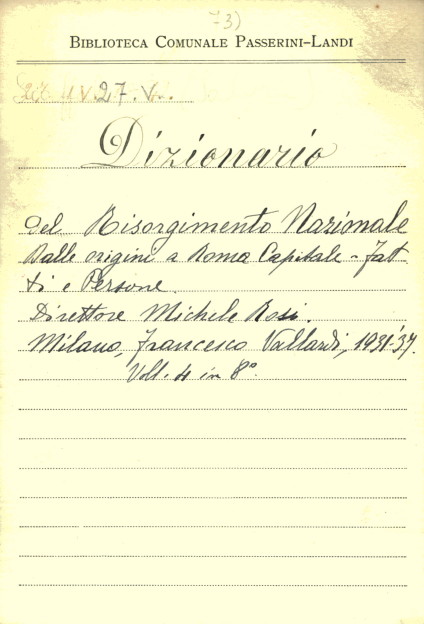 -3)
BIBLIOTECA COMUNALE PASSERINI-LANDI
V. 27. V.
Dizionario
del Risorgimento Nazionale
Dalle origini a Roma Capitale - Fat
ti e Persone.
Direttore Michele Rosi.
Milano, Francesco Vallardi, 1931-'37.
Voll. 4 in 8º.